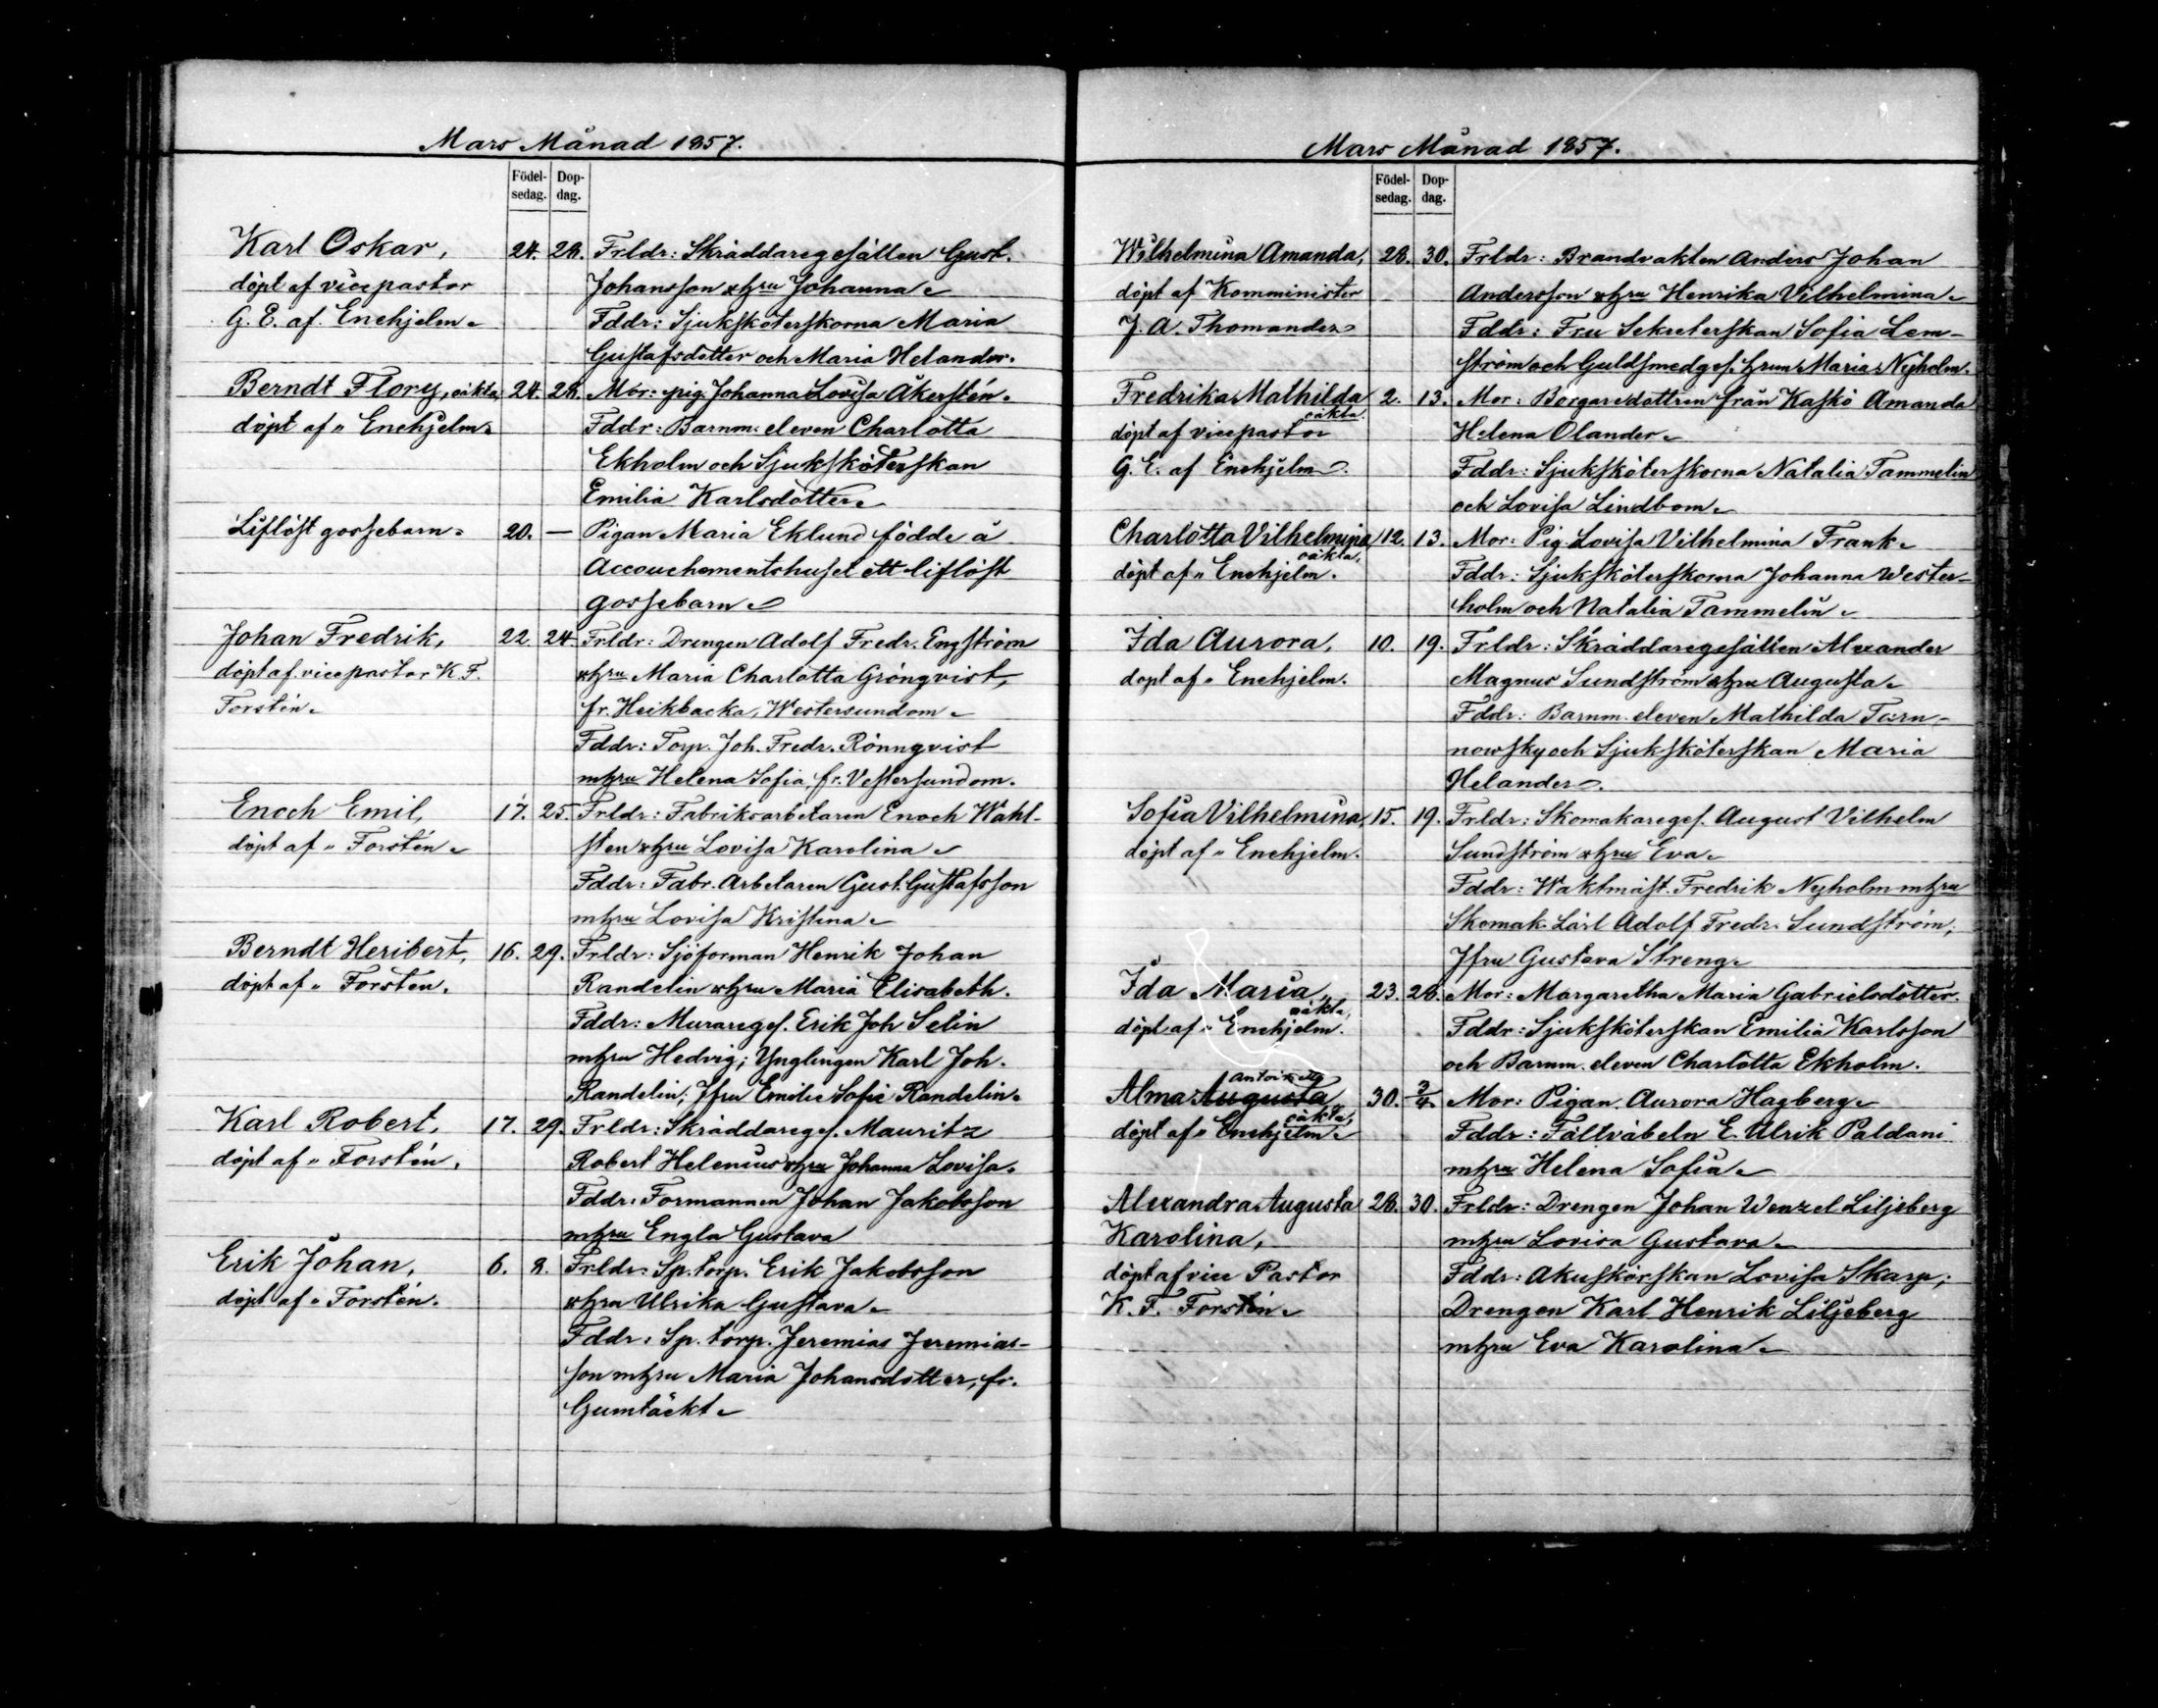 Mars Månad 1857.
Födel-
sedag.
Dop-
dag.
Karl Oskar, 24. 28. Frldr: Skräddaregesällen Gust.
döpt af vicepastor Johansson o hru Johanna.
G. E. af Enehjelm. Fddr: Sjuksköterskorna Maria
Gustafsdotter och Maria Helander.
Berndt Flory, oäkta, 24. 28. Mor: pig. Johanna Lovisa Åkerstén.
döpt af " Enehjelm. Fddr: Barnm. eleven Charlotta
Ekholm och Sjuksköterskan
Emilia Karlsdotter.
Liflöst gossebarn. 20. — Pigan Maria Eklund födde å
Accouchementshuset ett liflöst
gossebarn.
Johan Fredrik, 22. 24. Frldr: Drengen Adolf Fredr. Engström
döpt af vicepastor K. F. o hru Maria Charlotta Grönqvist,
Forstén. fr. Heikbacka, Westersundom.
Fddr: Torp. Joh. Fredr. Rönnqvist
m hru Helena Sofia, fr. Vestersundom.
Enoch Emil, 17. 25. Frldr: Fabriksarbetaren Enoch Wahl-
döpt af " Forstén. sten o hru Lovisa Karolina.
Fddr: Fabr. Arbetaren Gust. Gustafsson
m hru Lovisa Kristina.
Berndt Heribert, 16. 29. Frldr: Sjöforman Henrik Johan
döpt af " Forstén. Randelin o hru Maria Elisabeth.
Fddr: Murareges. Erik Joh Selin
m hru Hedvig; Ynglingen Karl Joh.
Randelin; Jfru Emilie Sofie Randelin.
Karl Robert, 17. 29. Frldr: Skräddareges. Mauritz
döpt af " Forstén. Robert Helenius o hru Johanna Lovisa.
Fddr: Formannen Johan Jakobsson
m hru Engla Gustava
Erik Johan, 6. 8. Frldr: Sp. torp. Erik Jakobsson
döpt af " Forstén. o hru Ulrika Gustava.
Fddr: Sp. torp. Jeremias Jeremias-
son m hru Maria Johansdotter, fr.
Gumtäckt.
Mars Månad 1857.
Födel-
sedag.
Dop-
dag.
Wilhelmina Amanda, 28. 30. Frldr: Brandvakten Anders Johan
döpt af Komminister Andersson o hru Henrika Vilhelmina.
J. A. Thomander. Fddr: Fru Sekreterskan Sofia Lem-
ström och Guldsmedges. hrun Maria Nyholm.
Fredrika Mathilda oäkta. 2. 13. Mor: Borgaredottren från Kaskö Amanda
döpt af vicepastor Helena Olander.
G. E. af Enehjelm. Fddr: Sjuksköterskorna Natalia Tammelin
och Lovisa Lindbom.
Charlotta Vilhelmina oäkta, 12. 13. Mor: Pig. Lovisa Vilhelmina Frank.
döpt af " Enehjelm. Fddr: Sjuksköterskorna Johanna Wester-
holm och Natalia Tammelin.
Ida Aurora, 10. 19. Frldr: Skräddaregesällen Alexander
döpt af " Enehjelm. Magnus Sundström o hru Augusta.
Fddr: Barnm. eleven Mathilda Tarn-
nowsky och Sjuksköterskan Maria
Helander.
Sofia Vilhelmina, 15. 19. Frldr: Skomakareges. August Vilhelm
döpt af " Enehjelm. Sundström o hru Eva.
Fddr: Waktmäst. Fredrik Nyholm m hru
Skomak. Lärl Adolf Fredr. Sundström;
Jfru Gustava Streng.
Ida Maria, oäkta, 23. 28. Mor: Margaretha Maria Gabrielsdotter.
döpt af " Enehjelm. Fddr: Sjuksköterskan Emilia Karlsson
och Barnm. eleven Charlotta Ekholm.
Alma Augusta oäkta, 30. 3/4. Mor: Pigan Aurora Hagberg.
döpt af " Enehjelm. Fddr: Fältväbeln E. Ulrik Paldani
m hru Helena Sofia.
Alexandra Augusta 28. 30. Frldr: Drengen Johan Wenzel Liljeberg
Karolina, m hru Lovisa Gustava.
döpt af vice Pastor Fddr: Akuskörskan Lovisa Skarp;
K. F. Forstén. Drengen Karl Henrik Liljeberg
m hru Eva Karolina.